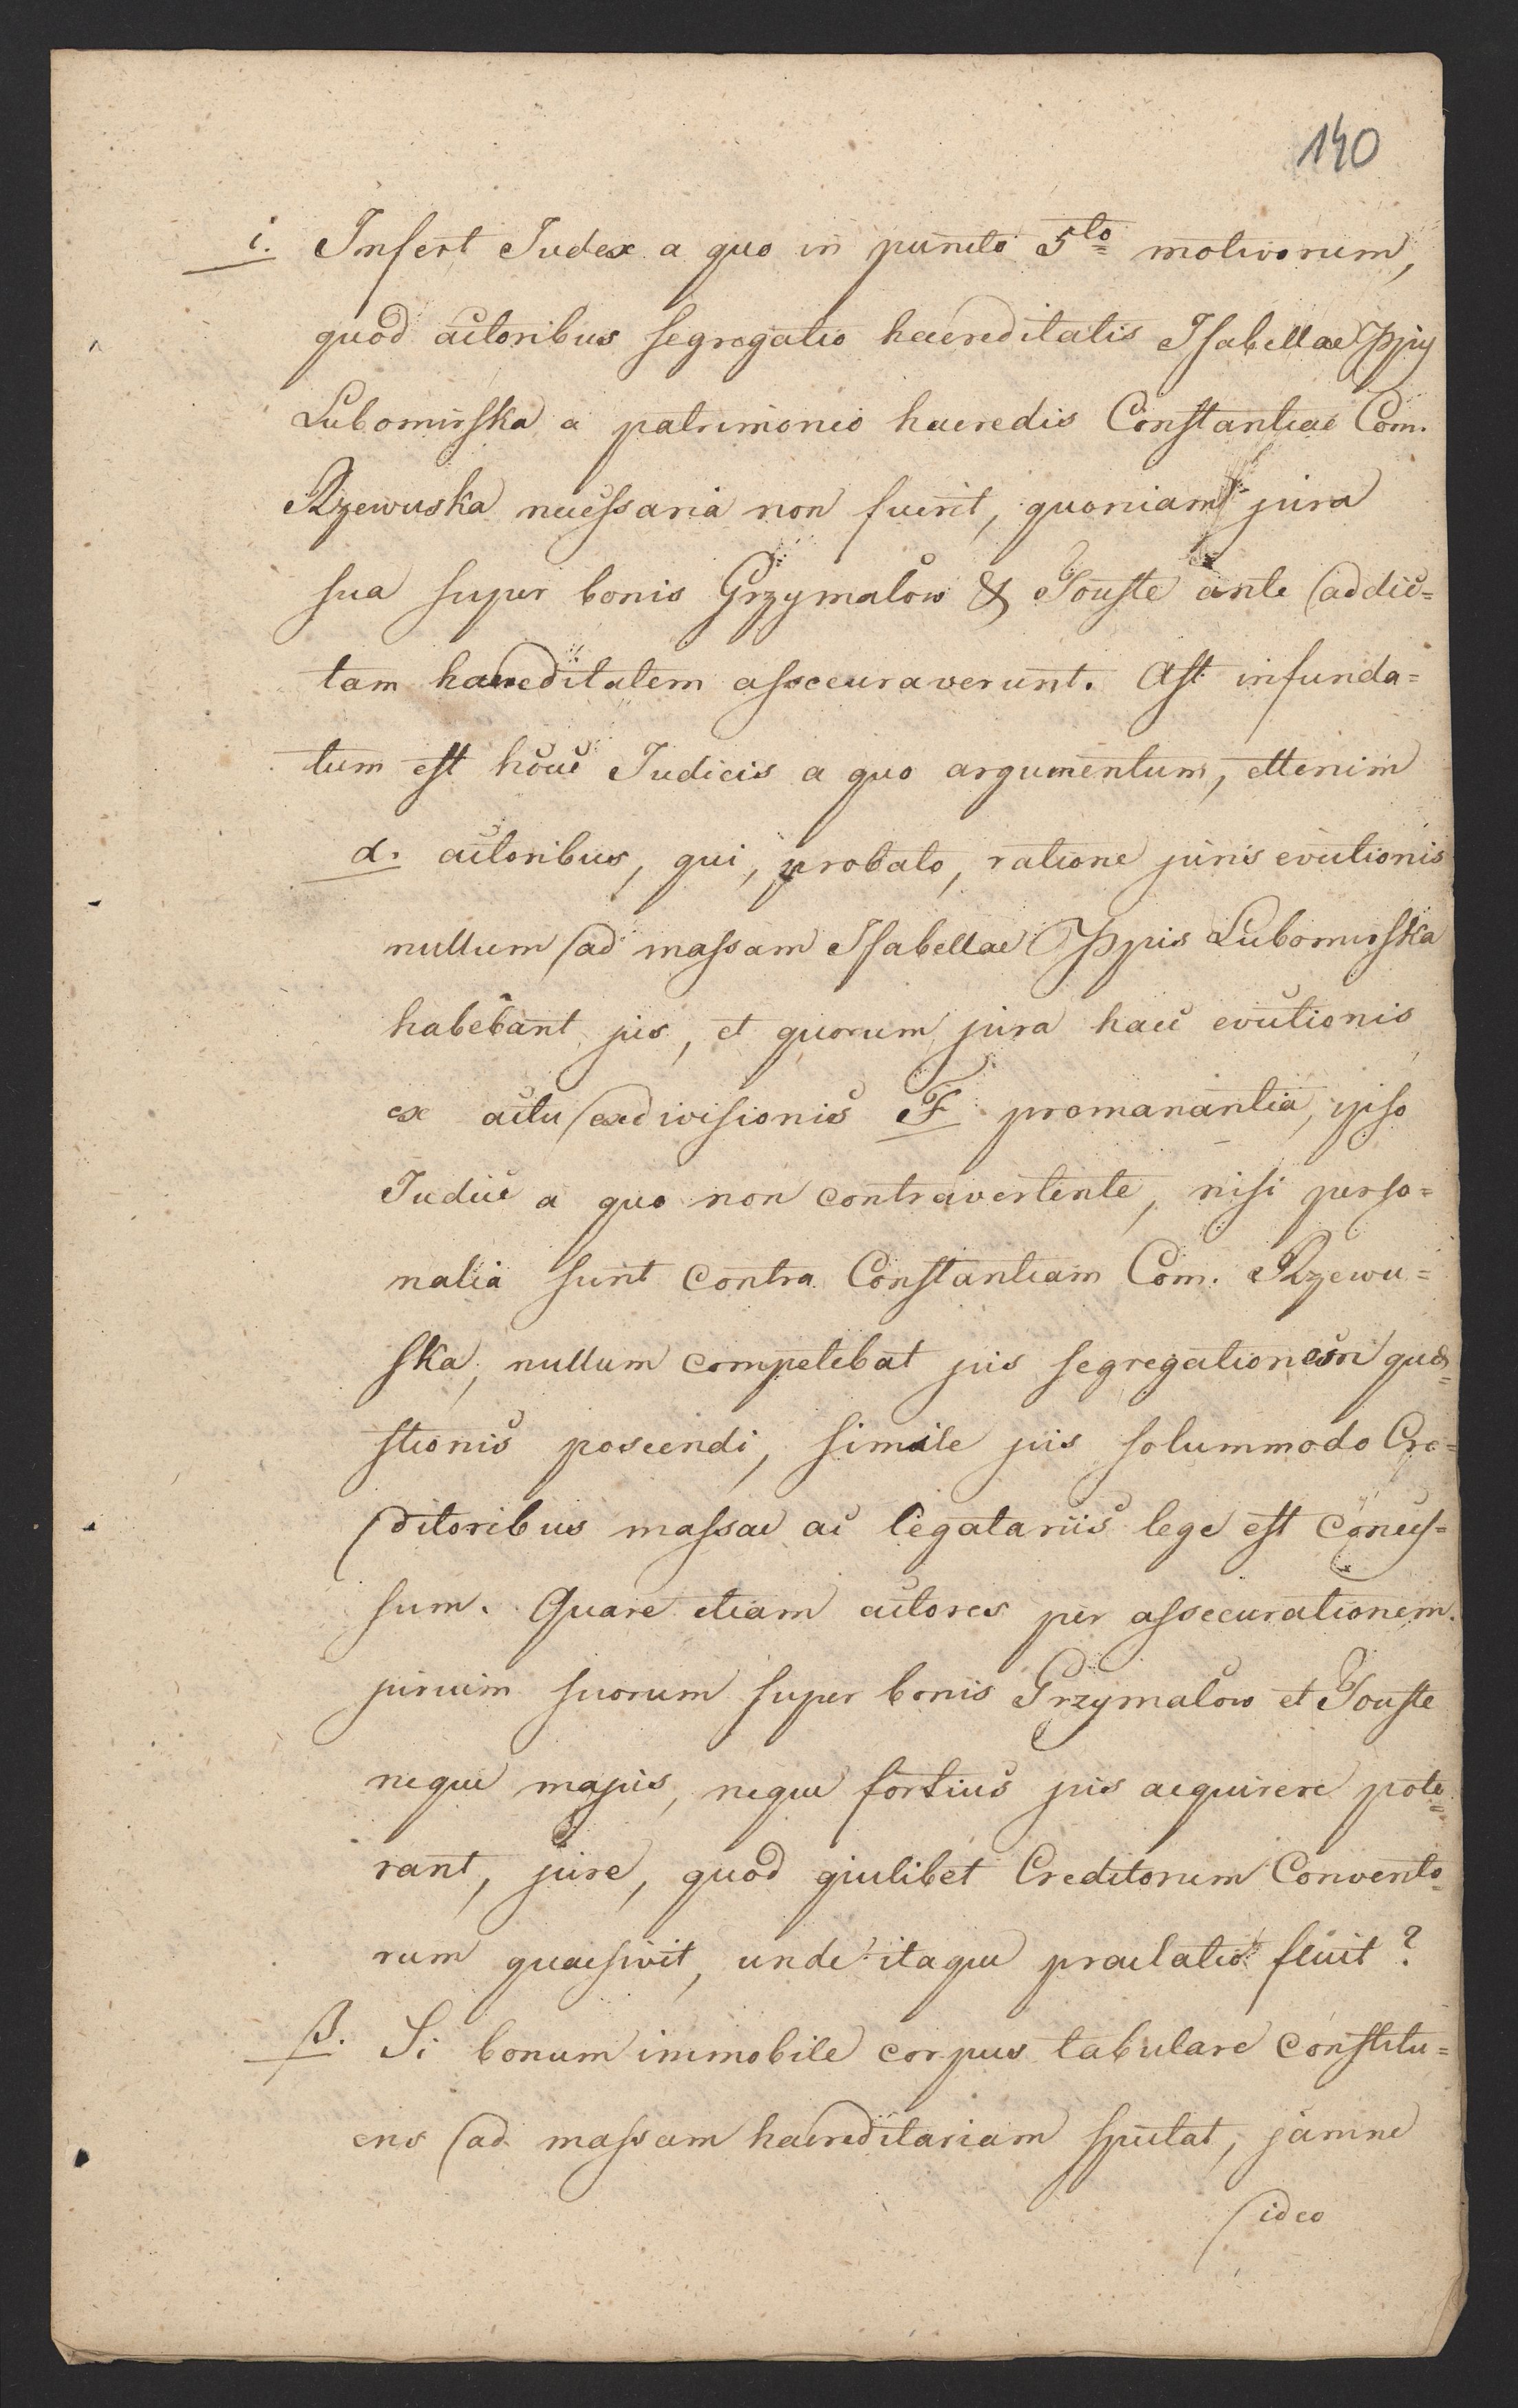 140
i. Infert Judex a quo in puncto 5to motivorum,
quod actoribus segregatio haereditatis Isabellae Ppis
Lubomirska a patrimonio haeredis Constantiae Com.
Rzewuska necessaria non fuerit, quoniam jura
sua super bonis Grzymalow & Touste ante addic=
tam haereditatem assecuraverunt. Ast infunda=
tum est hocce Judicis a quo argumentum, ettenim
α. actoribus, qui, probato, ratione juris evictionis
nullum ad massam Isabellae Ppis Lubomirska
habebant jus, et quorum jura haec evictionis
ex actu exdivisionis F promanantia, ipso
Judice a quo non contravertente, nisi perso=
nalia sunt contra Constantiam Com. Rzewu=
ska, nullum competebat jus segregationem quae=
stionis poscendi, simile jus solummodo Cre=
ditoribus massae ac legatariis lege est conces=
sum. Quare etiam actores per assecurationem
jurium suorum super bonis Grzymalow et Touste
neque majus, neque fortius jus acquirere pote=
rant, jure, quod quilibet Creditorum Convento=
rum quaesivit, unde itaque praelatio fluit?
β. Si bonum immobile corpus tabulare constitu=
ens ad massam haereditariam spectat, jamne
ideo